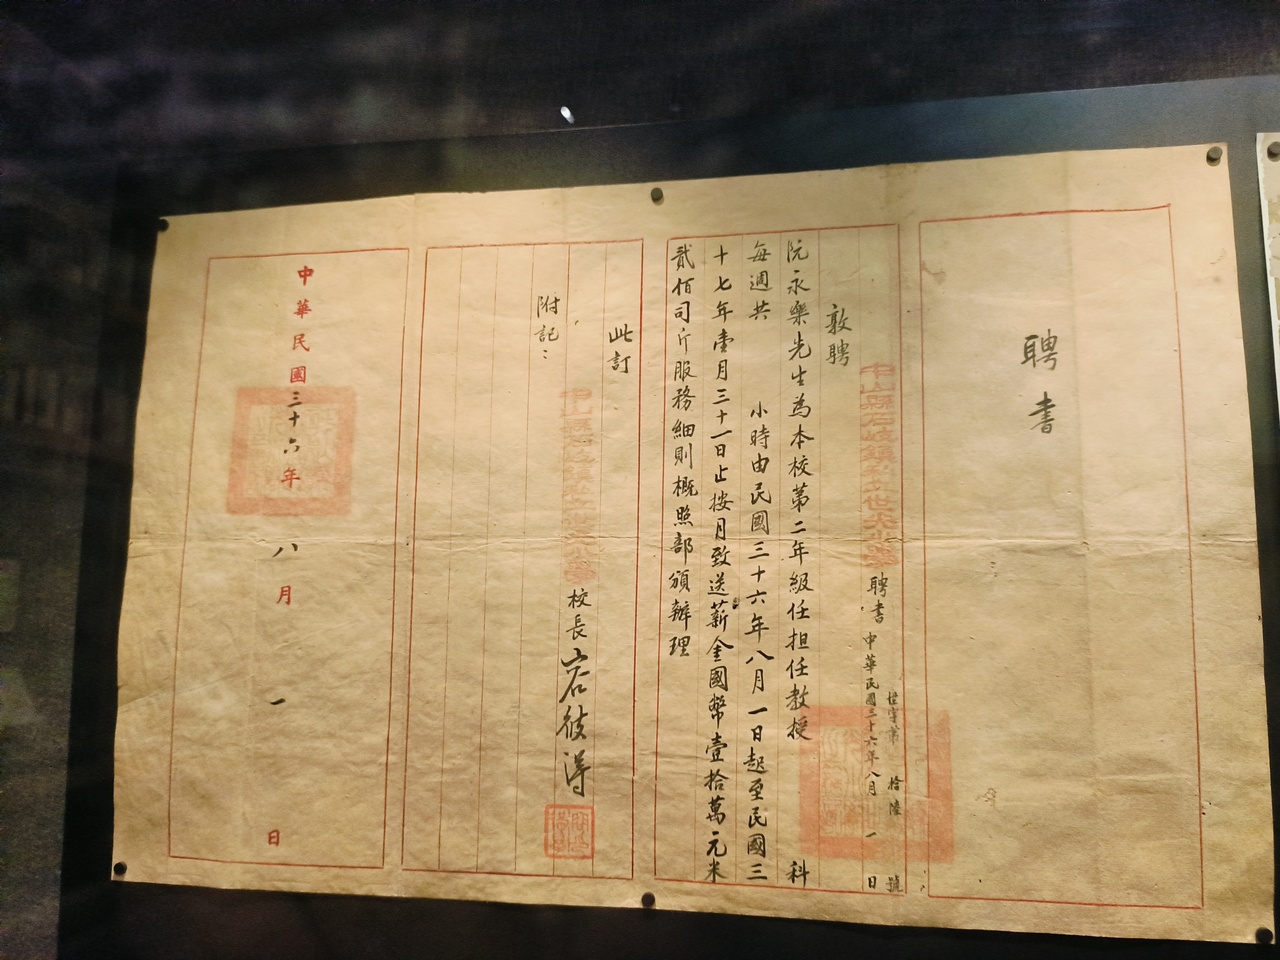 聘書
中山縣石岐鎮私立世光小學聘書 中華民國三十六年八月一日
字第 拾陸 號
敦聘
阮永樂先生為本校第二年級任担任教授 科
每週共 小時由民國三十六年八月一日起至民國三
十七年壹月三十一日止按月致送薪金國幣壹拾萬元米
貳佰司斤服務細則概照部頒辦理
此訂
校長
附記：
中華民國三十六年八月一日